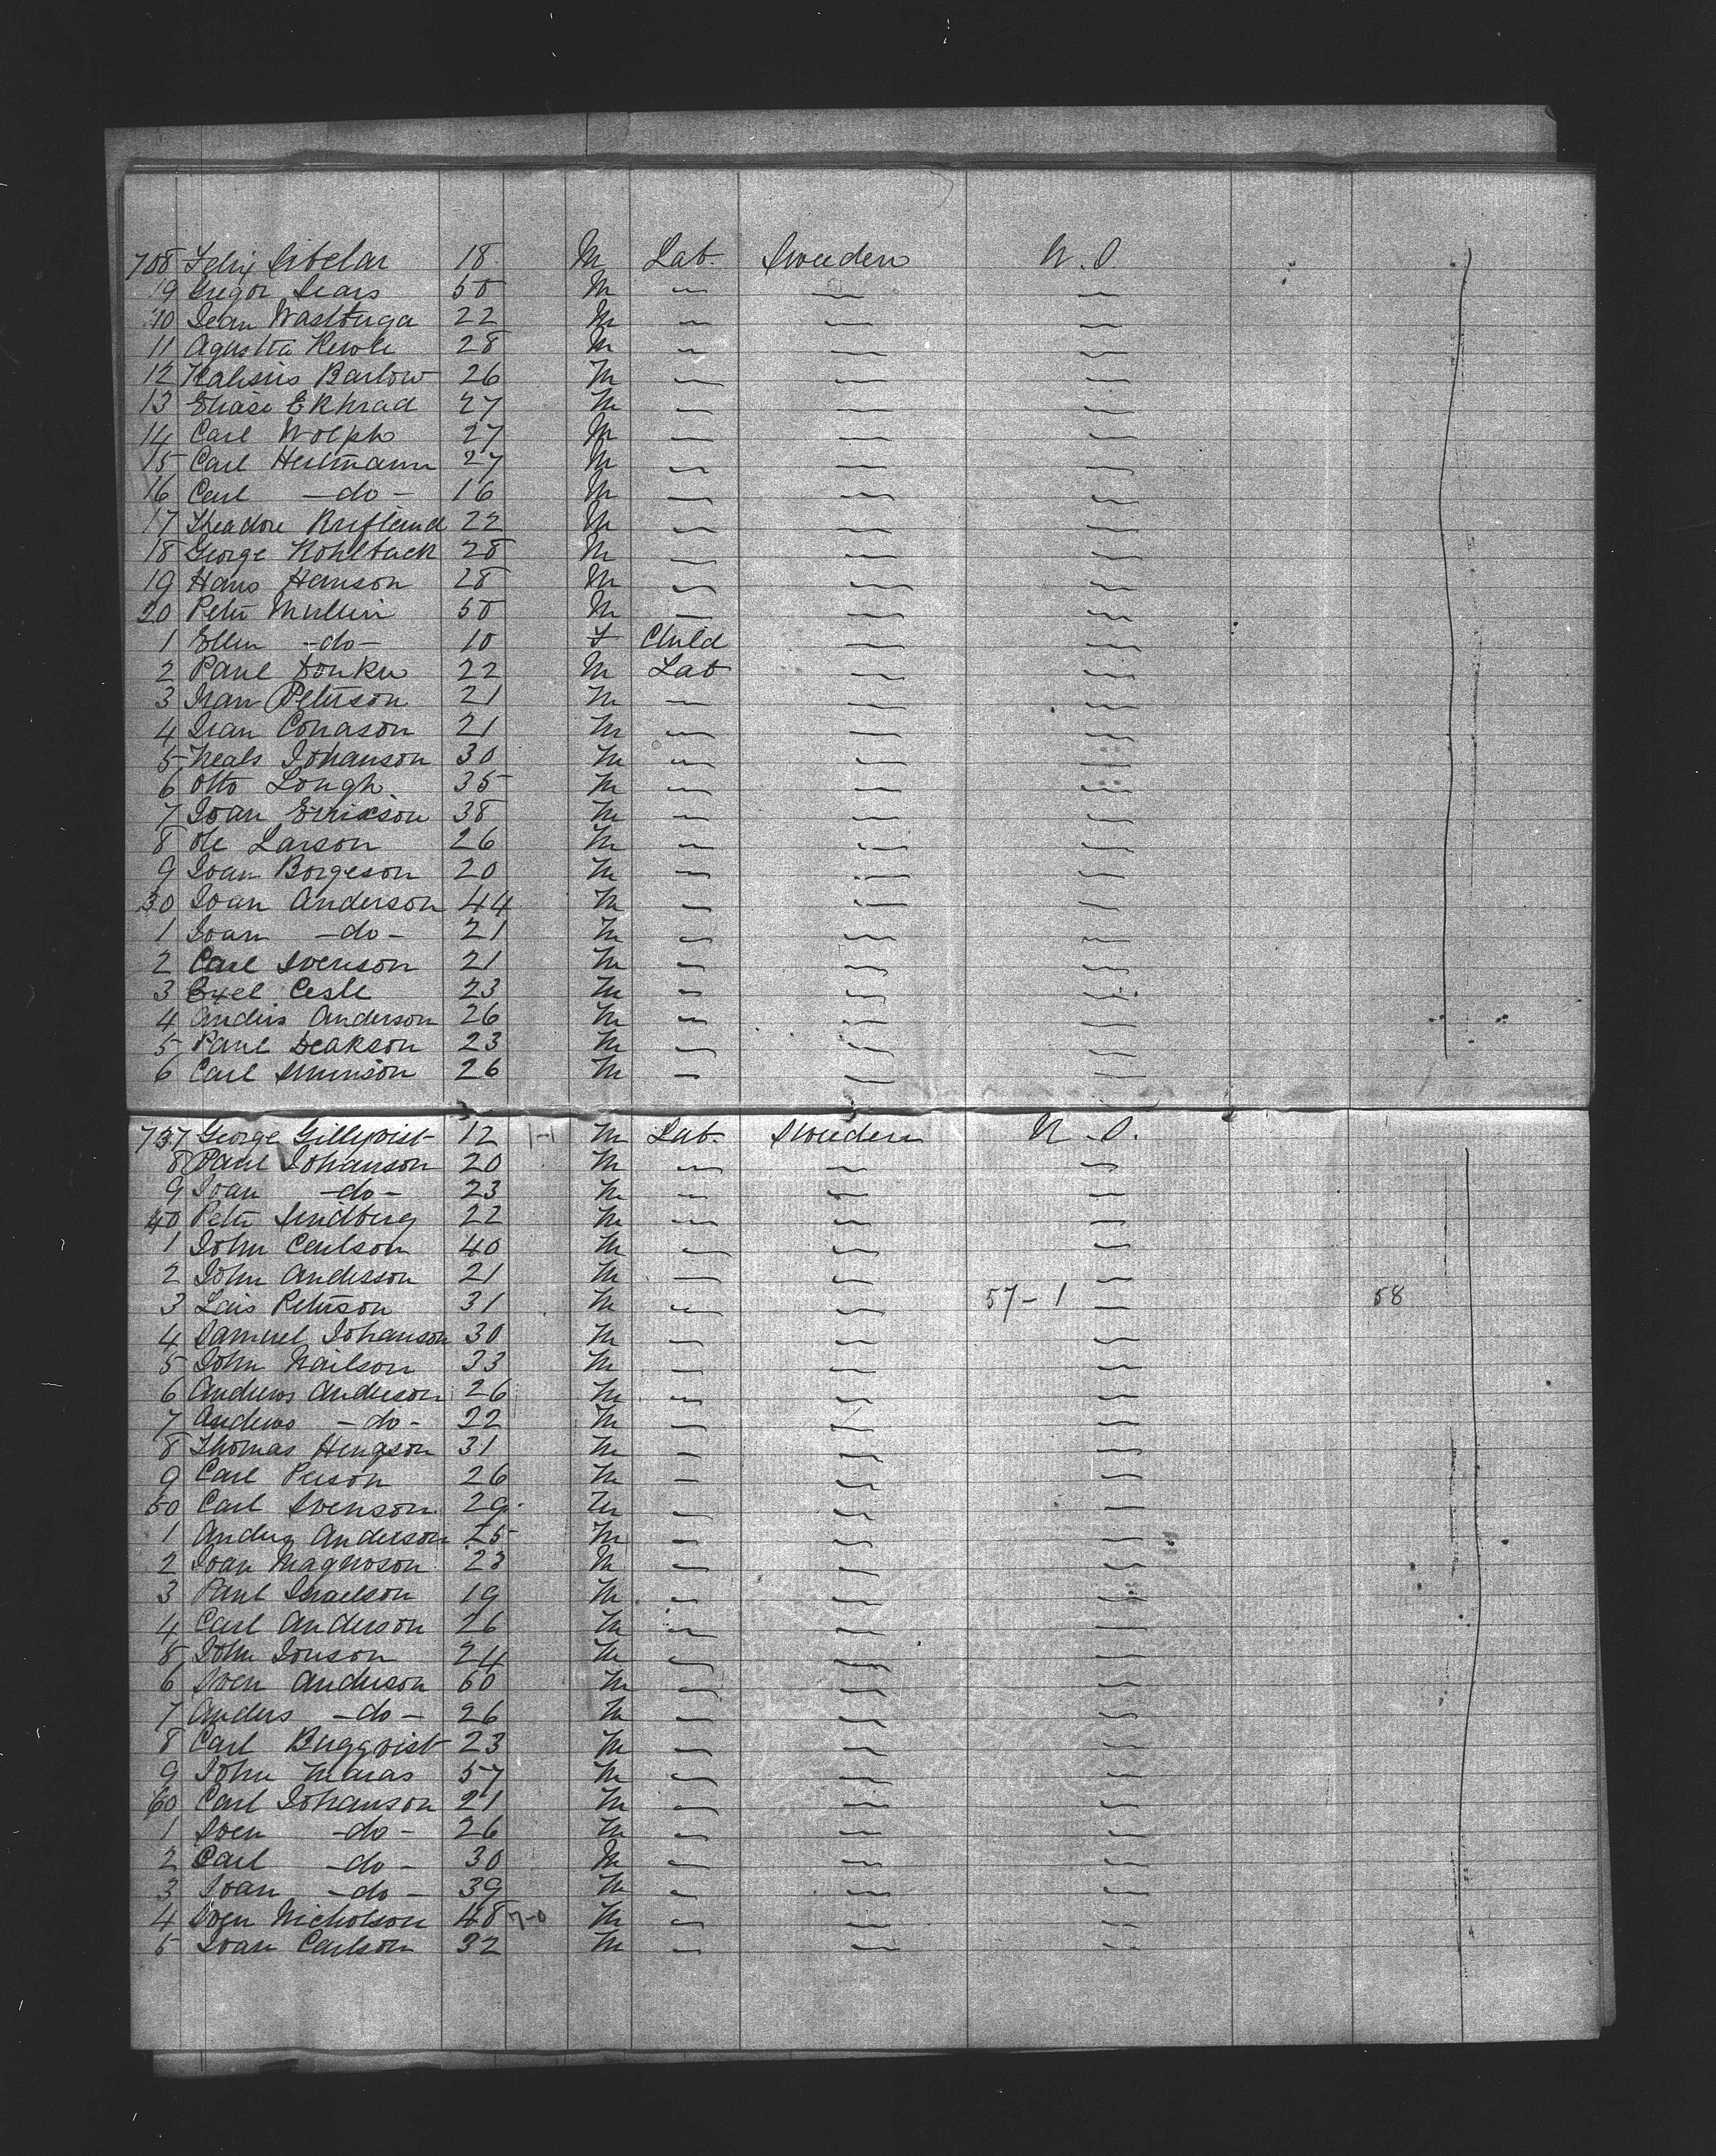 708 Felix Sibelar 18 M Lab. Sweden U.S.
19 Gregor Sears 50 M
10 Sean Wastuga 22 M
11 Agustta 28 M
12 Barlow 26 M
13 Ekhrad 27 M
14 Carl Wolph 27 M
15 Carl Heilmann 27 M
16 Carl -do- 16 M
17 Theadore 22 M
18 George Kohlback 28 M
19 Hans Hanson 28 M
20 Peter Mullin 50 M
1 Ellen -do- 10 F Child
2 Paul Donker 22 M Lab
3 Peterson 21 M
4 Conason 21 M
5 Neals Johanson 30 M
6 Otto Lough 35 M
7 Joan Errikson 38 M
8 Ole Larson 26 M
9 Joan Borgeson 20 M
30 Joan Anderson 44 M
1 Joan -do- 21 M
2 Carl Svenson 21 M
3 Exel Cesle 23 M
4 Anders Anderson 26 M
5 Paul Deakson 23 M
6 Carl 26 M
737 George Gillqvist 12 1-1 M Lab. Sweden U.S.
8 Paul Johanson 20 M
9 Joan -do- 23 M
40 Peter Lindberg 22 M
1 John Carlson 40 M
2 John Andesson 21 M
3 Lars Peterson 31 M 57-1 58
4 Samuel Johanson 30 M
5 John Nailson 33 M
6 Andrews Anderson 26 M
7 Andrews -do- 22 M
8 Thomas Hengson 31 M
9 Carl Person 26 M
50 Carl Svenson 29 M
1 Anders Anderson 25 M
2 Joan Magnoson 23 M
3 Paul Israelson 19 M
4 Carl Anderson 26 M
5 John Jonson 24 M
6 Sven Anderson 60 M
7 Anders -do- 26 M
8 Carl Bergqvist 23 M
9 John Maras 57 M
60 Carl Johanson 21 M
1 Sven -do- 26 M
2 Carl -do- 30 M
3 Joan -do- 39 M
4 Sven Nicholson 48 7-0 M
5 Joan Carlson 32 M